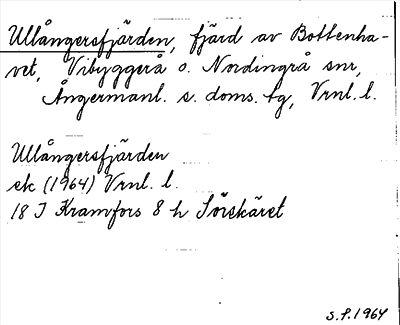 Ullångersfjärden, fjärd av Bottenha-
vet, Vibyggerå o. Nordingrå snr,
Ångermanl. s. doms. tg, Vrnl. l.
Ullångersfjärden
ek (1964) Vrnl. l.
18 I Kramfors 8 h Sörskäret
S.P. 1964